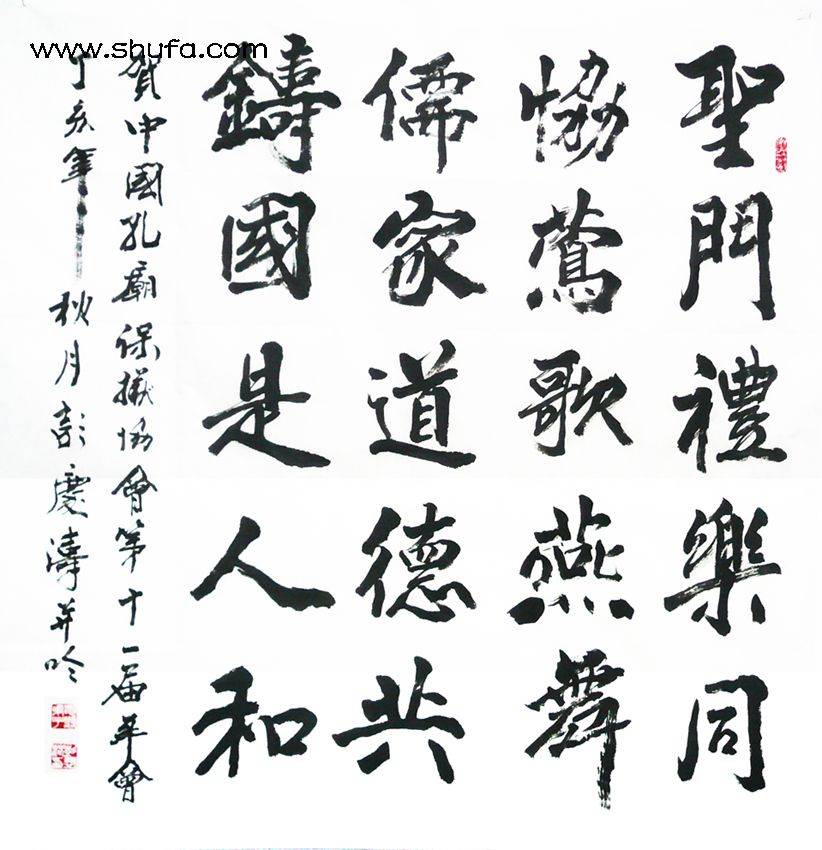 www.shufa.com
聖門禮樂同
協鶯歌燕舞
儒家道德共
鑄國是人和
賀中國孔廟保護協會第十一届年會
丁亥年秋月彭慶濤并吟